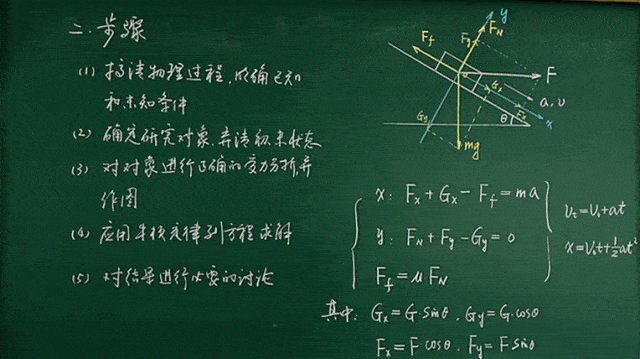 二. 步骤
(1) 搞清物理过程, 明确已知
和未知条件
(2) 确定研究对象, 弄清初末状态
(3) 对对象进行正确的受力分析,并
作图
(4) 应用牛顿定律列方程求解
(5) 对结果进行必要的讨论
y
F_N
F_y
F_f
F
G_x
a, υ
F_x
x
G_y
θ
mg
x: F_x + G_x − F_f = ma
y: F_N + F_y − G_y = 0
F_f = μF_N
υ_t = υ_0 + at
x = υ_0t + ½at²
其中: G_x = G·sinθ, G_y = G·cosθ
F_x = F·cosθ, F_y = F·sinθ